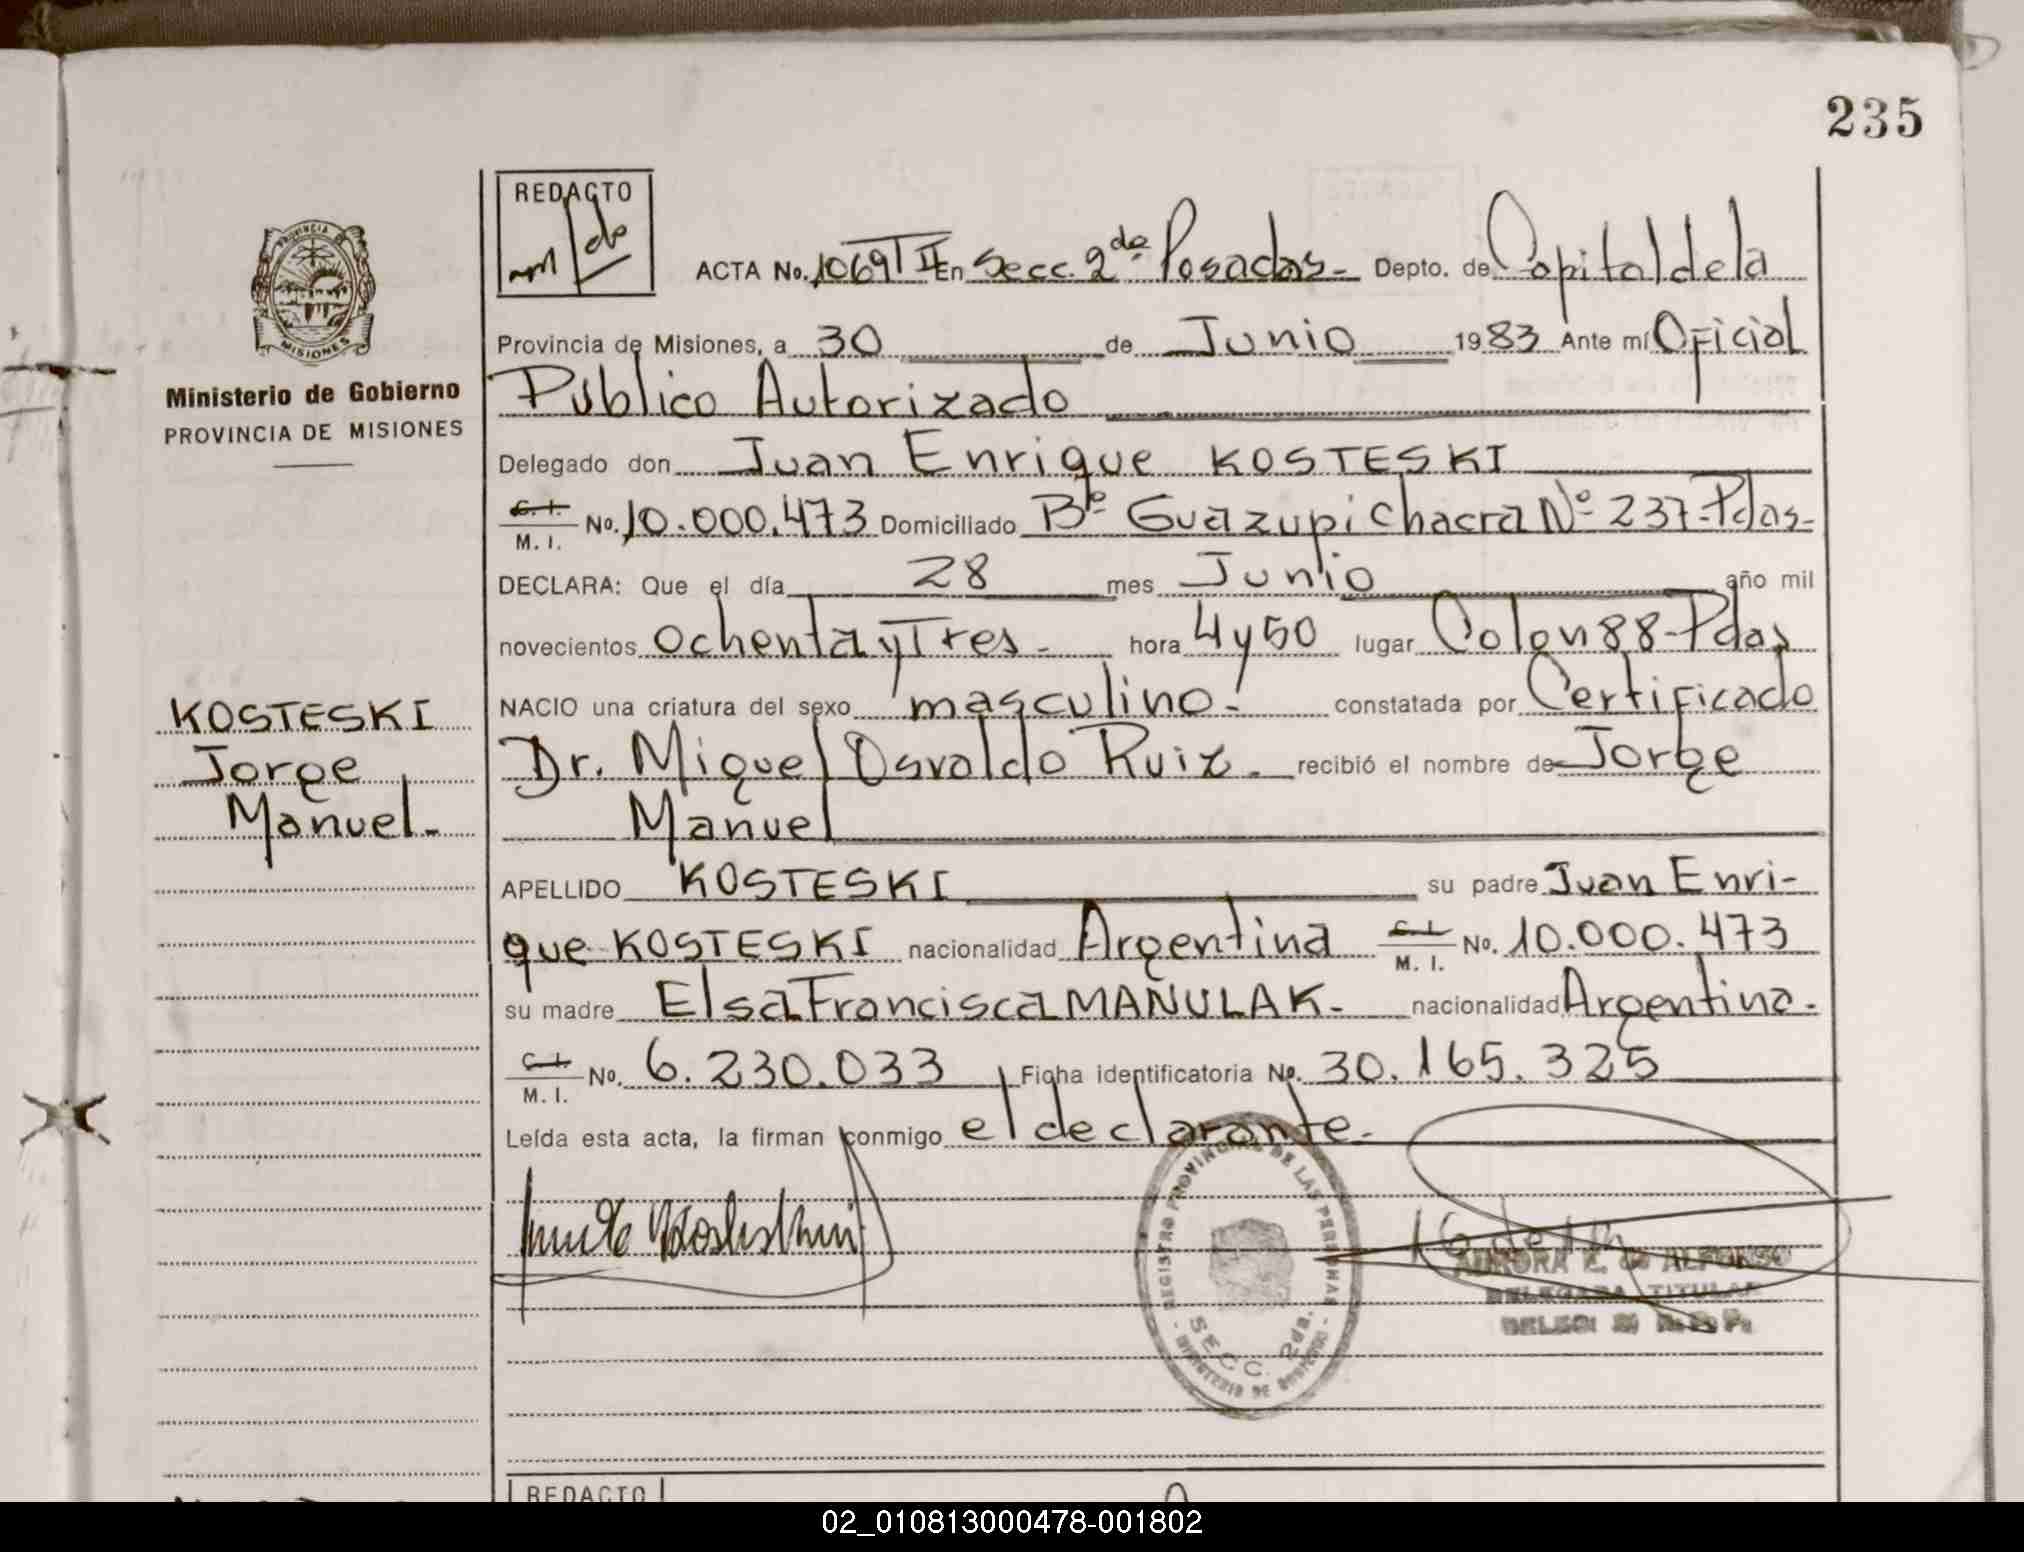 235
REDACTO
ACTA No. 1069 T II En Secc. 2da Posadas- Depto. de Capital de la
PROVINCIA
MISIONES
Provincia de Misiones, a 30 de Junio 1983 Ante mí Oficial
Ministerio de Gobierno
PROVINCIA DE MISIONES
Público Autorizado
Delegado don Juan Enrique KOSTESKI
C. I. M. I. No. 10.000.473 Domiciliado Bº Guazupi Chacra Nº 237-Pdas-
DECLARA: Que el día 28 mes Junio año mil
novecientos ochenta y Tres- hora 4 y 50 lugar Colon 88-Pdas
KOSTESKI
Jorge
Manuel-
NACIO una criatura del sexo masculino- constatada por Certificado
Dr. Miguel Osvaldo Ruiz- recibió el nombre de Jorge
Manuel
APELLIDO KOSTESKI su padre Juan Enri-
que KOSTESKI nacionalidad Argentina C. I. M. I. No. 10.000.473
su madre Elsa Francisca MAÑULAK- nacionalidad Argentina-
C. I. M. I. No. 6.230.033 Ficha identificatoria No. 30.165.325
Leída esta acta, la firman conmigo el declarante-
REGISTRO PROVINCIAL DE LAS PERSONAS
SECC. 2da.
MINISTERIO DE GOBIERNO
AURORA E. de ALFONSO
DELEGADA TITULAR
REDACTO
02_010813000478-001802